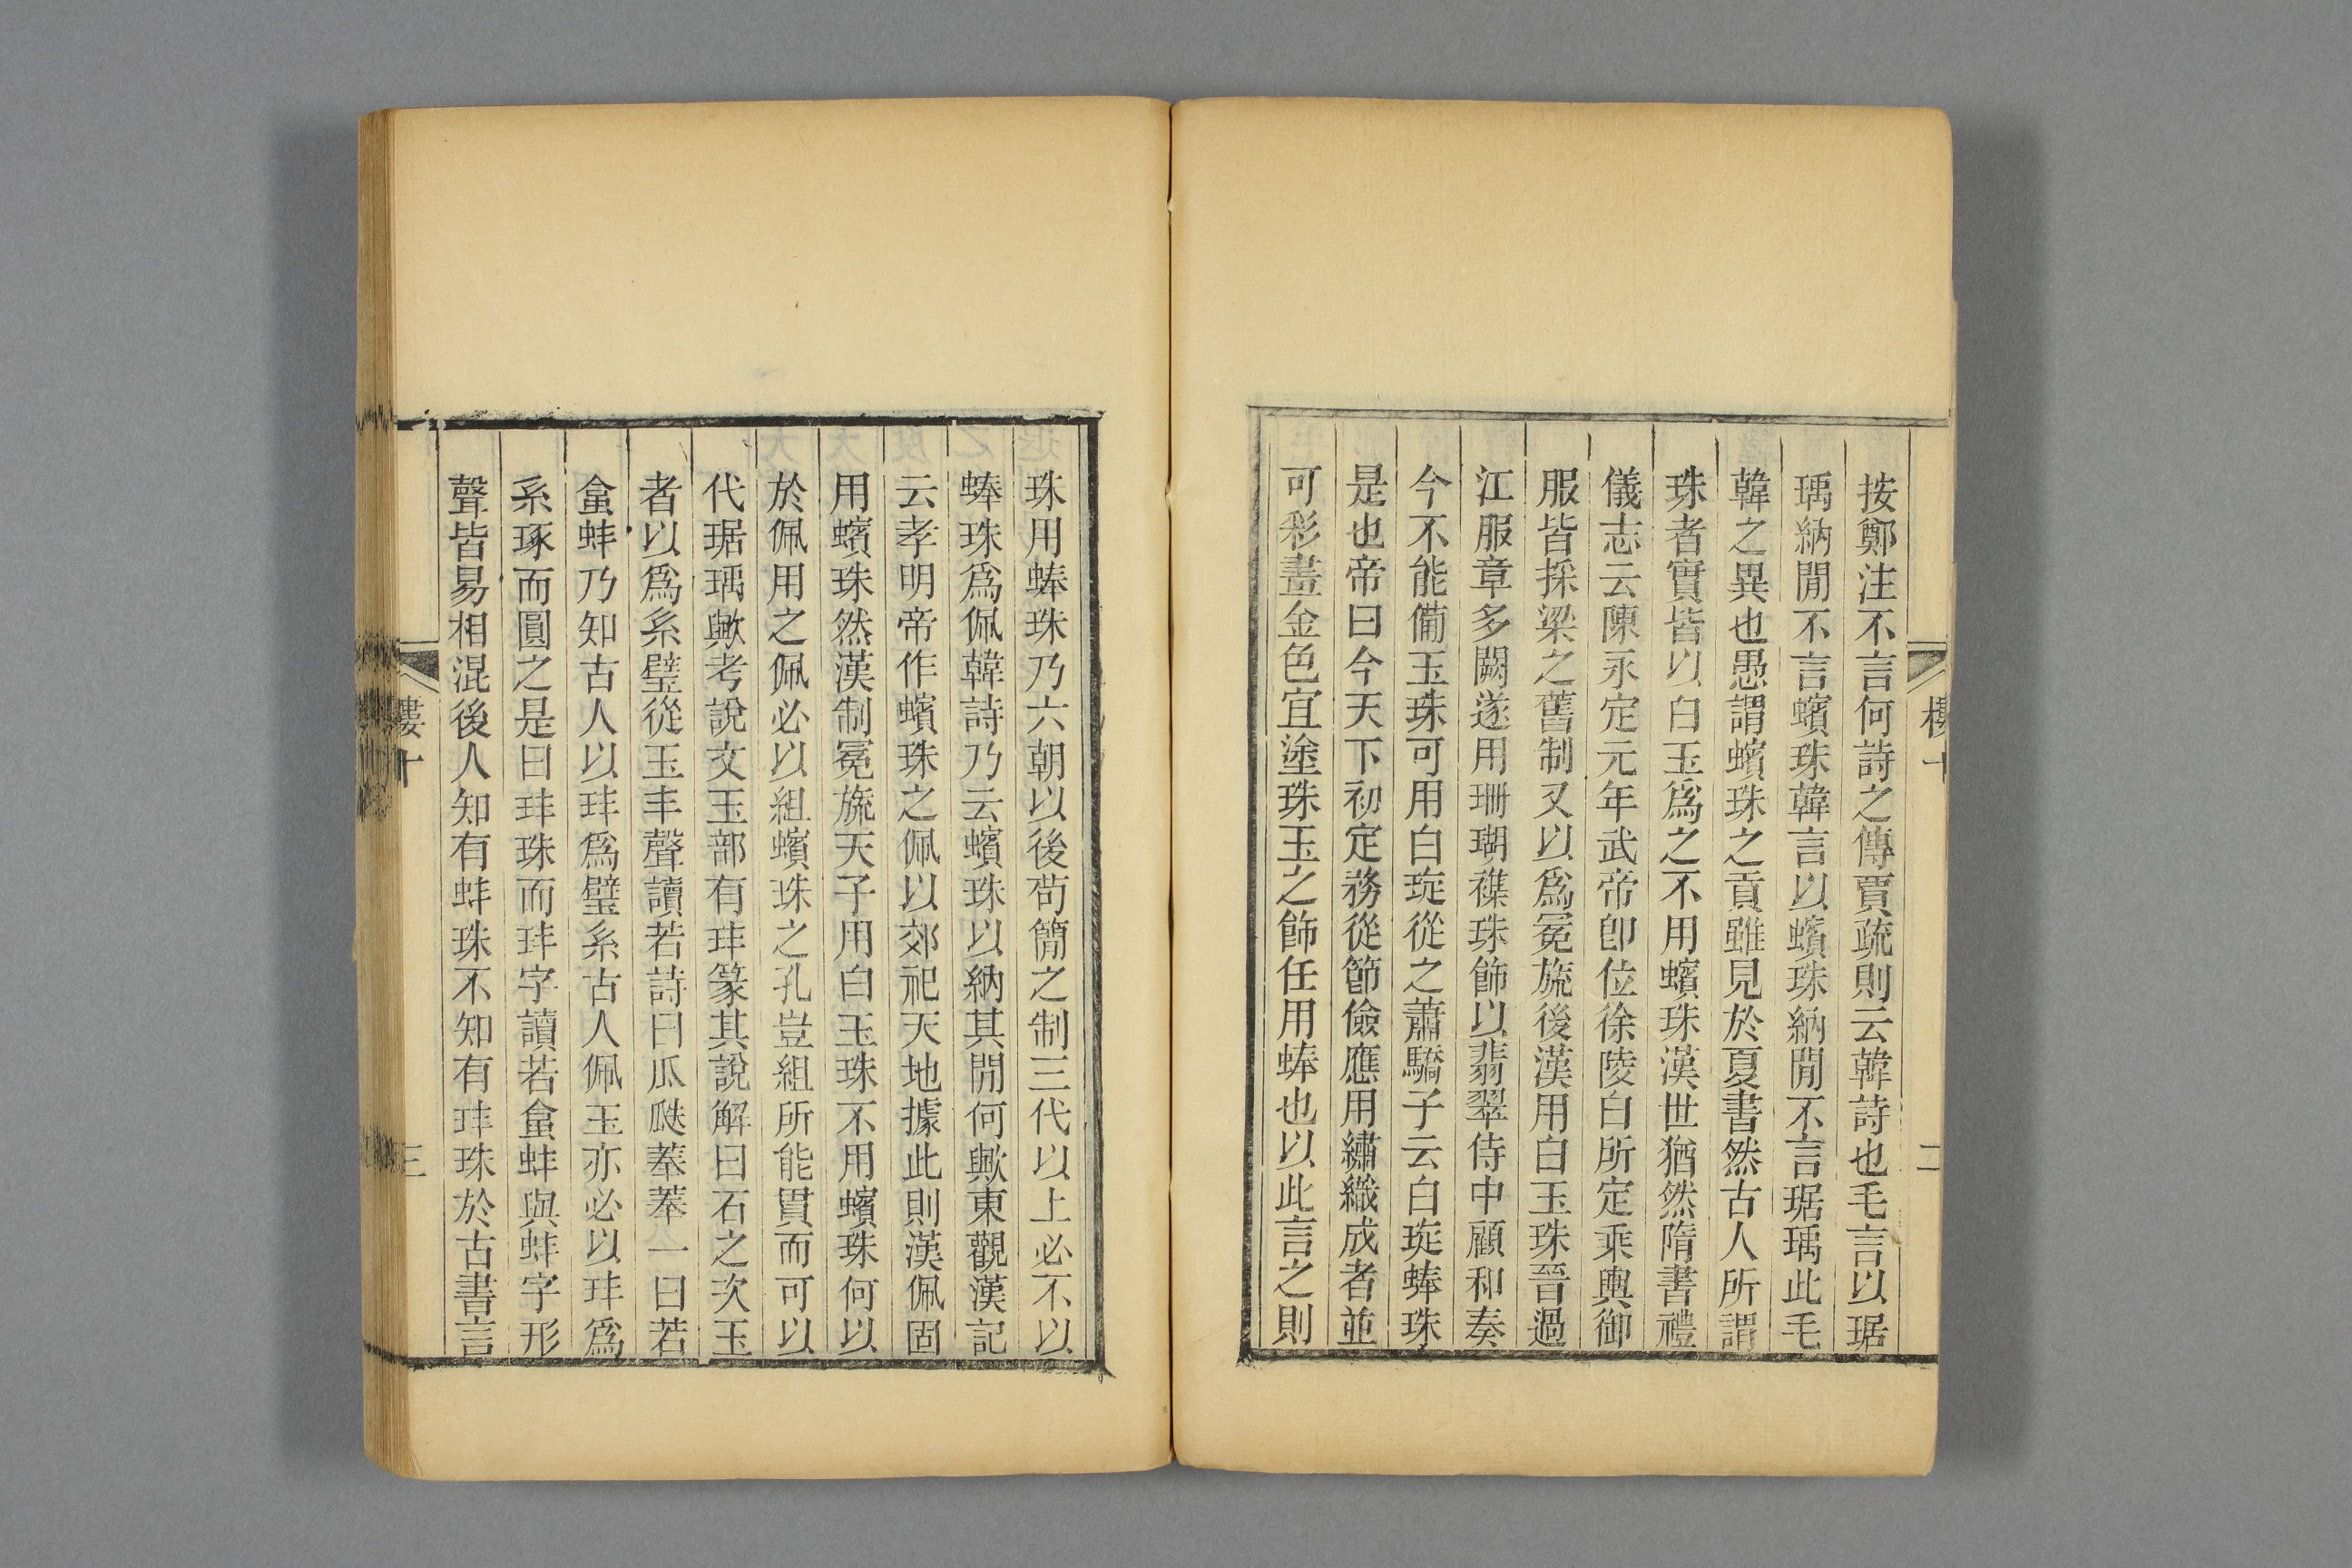 按鄭注不言何詩之傳賈疏則云韓詩也毛言以琚
瑀納閒不言蠙珠韓言以蠙珠納閒不言琚瑀此毛
韓之異也愚謂蠙珠之貢雖見於夏書然古人所謂
珠者實皆以白玉爲之不用蠙珠漢世猶然隋書禮
儀志云陳永定元年武帝卽位徐陵白所定乘輿御
服皆採梁之舊制又以爲冕旒後漢用白玉珠晉過
江服章多闕遂用珊瑚襍珠飾以翡翠侍中顧和奏
今不能備玉珠可用白琁從之蕭驕子云白琁蜯珠
是也帝曰今天下初定務從節儉應用繡織成者並
可彩畫金色宜塗珠玉之飾任用蜯也以此言之則
樓十
二
珠用蜯珠乃六朝以後苟簡之制三代以上必不以
蜯珠爲佩韓詩乃云蠙珠以納其閒何歟東觀漢記
云孝明帝作蠙珠之佩以郊祀天地據此則漢佩固
用蠙珠然漢制冕旒天子用白玉珠不用蠙珠何以
於佩用之佩必以組蠙珠之孔豈組所能貫而可以
代琚瑀歟考說文玉部有玤篆其說解曰石之次玉
者以爲系璧從玉丰聲讀若詩曰瓜瓞菶菶一曰若
盫蚌乃知古人以玤爲璧系古人佩玉亦必以玤爲
系琢而圓之是曰玤珠而玤字讀若盫蚌與蚌字形
聲皆易相混後人知有蚌珠不知有玤珠於古書言
樓十
三